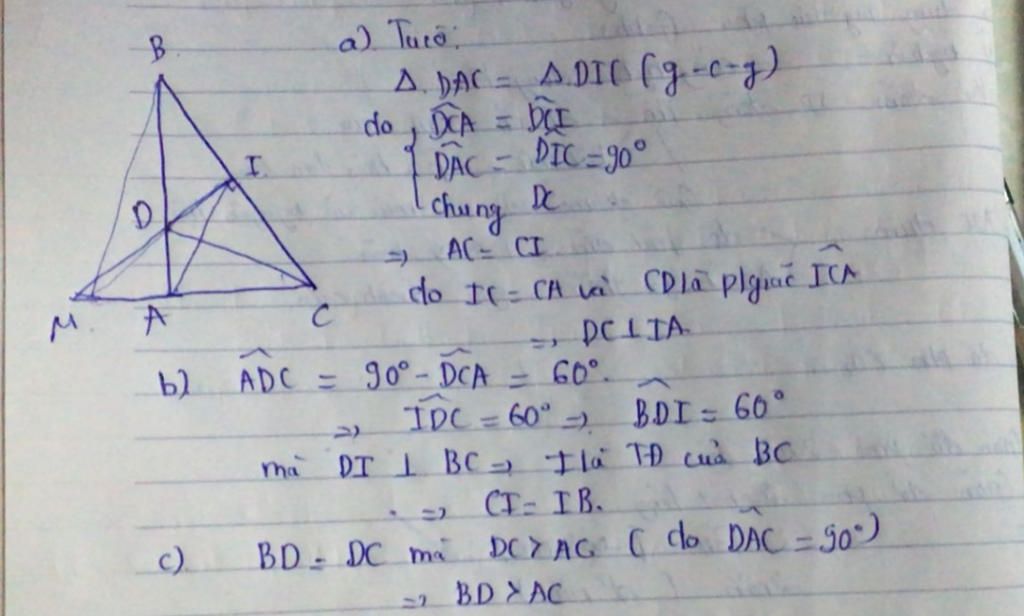 B
I
D
M
A
C
a) Ta có:
Δ.DAC = Δ.DIC (g-c-g)
do { \widehat{DCA} = \widehat{DCI}
\widehat{DAC} = \widehat{DIC} = 90°
chung DC
=> AC = CI
do IC = CA và CD là p/giác \widehat{ICA}
=> DC ⊥ IA.
b) \widehat{ADC} = 90° - \widehat{DCA} = 60°.
=> \widehat{IDC} = 60° => \widehat{BDI} = 60°
mà DI ⊥ BC => I là TĐ của BC
=> CI = IB.
c) BD = DC mà DC > AC (do \widehat{DAC} = 90°)
=> BD > AC